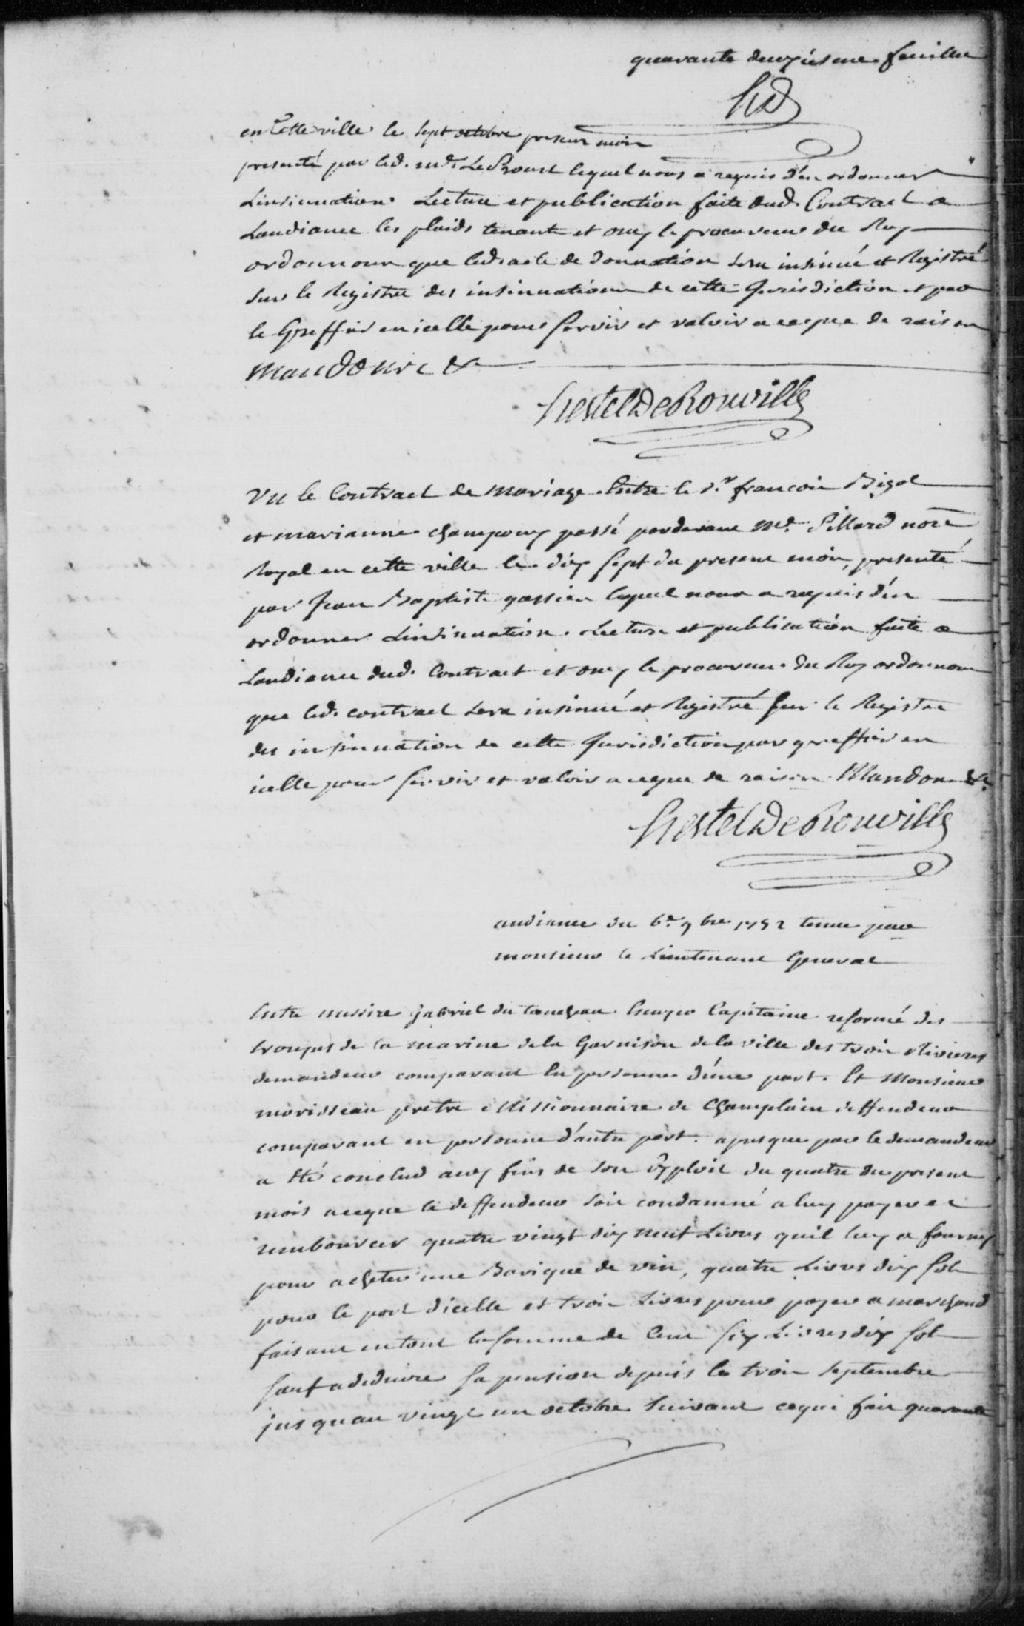 quarante deuxiesme feuillet
hd
en Cette ville le sept octobre present mois
presenté par led. md. LeProust lequel nous a requis d'en ordonner
Linsinuation. Lecture et publication faite dud. Contract a
Laudiance les plaids tenant et ouy le procureur du Roy
ordonnons que led. acte de donnation sera insinué et Registré
sur le Registre des insinuations de cette Jurisdiction et par
le Greffier en icelle pour servir et valoir a ceque de raison
Mandons &c
hertel De Rouville
Vu le Contract de Mariage Entre le Sr. francois Bigot
et marianne champoux passé pardevant Me. Pillard nore
Royal en cette ville le dix sept du present mois, presenté
par Jean Baptiste gassien lequel nous a requis d'en
ordonner Linsinuation. Lecture et publication faite a
Laudiance dud. Contract et ouy le procureur du Roy ordonnons
que led. contract sera insinué et Registré sur le Registre
des insinuation de cette Jurisdiction par greffier en
icelle pour servir et valoir a ceque de raison Mandons &c.
hertel De Rouville
audiance du 6e. 9bre 1752 tenue par
monsieur le Lieutenant General
Entre messire Gabriel du Capitaine reformé des
troupes de la marine de la Garnison de la ville des trois Rivieres
demandeur comparant En personne d'une part. Et Monsieur
morisseau pretre Missionnaire de Champlain deffendeur
comparant en personne d'autre part. aprés que par le demandeur
a Eté conclud aux fins de son Exploit du quatre du present
mois a ceque le deffendeur soit condamné a luy payer et
rembourcer quatre vingt dix neuf Livres qu'il luy a fourny
pour acheter une Barique de vin, quatre Livres dix sols
pour le port d'icelle et trois Livres pour payer a marchand
faisant en tout la somme de Cent six Livres dix sol
sauf a deduire sa pension depuis le trois septembre
jusquau vingt un octobre suivant cequi fait quarante